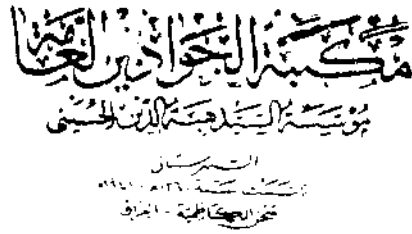 مكتبة الجوادين العامة
مؤسسة السيد هبة الدين الحسيني
الشهرستاني
تأسست سنة
صحن الكاظمية - العراق